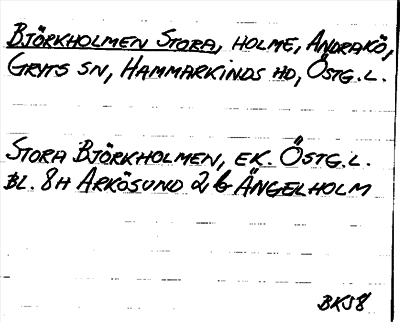 BJÖRKHOLMEN STORA, HOLME, ANDRAKÖ,
GRYTS SN, HAMMARKINDS HD, ÖSTG.L.
STORA BJÖRKHOLMEN, EK. ÖSTG.L.
BL. 8H ARKÖSUND 2b ÄNGELHOLM
BKS8